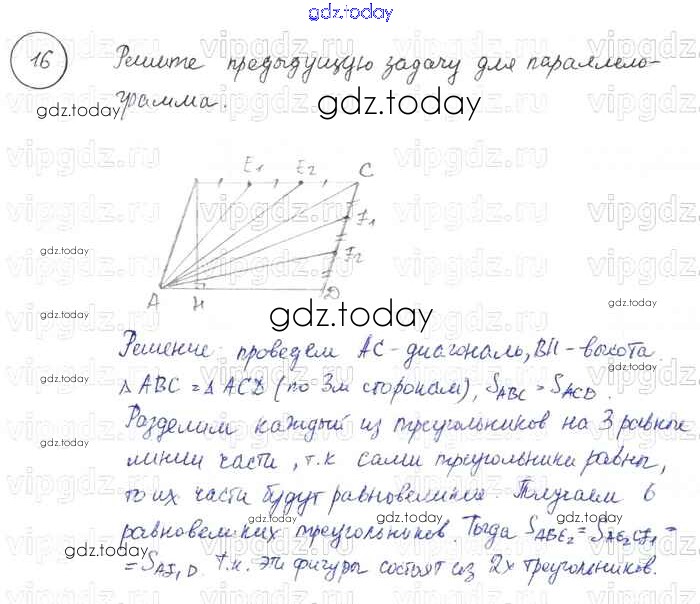 gdz.today
16 Решите предыдущую задачу для параллело-
грамма.
gdz.today
gdz.today
vipgdz.ru
E1 E2 C
F1
F2
A H D
gdz.today
gdz.today
gdz.today
Решение: проведем AC-диагональ, BH-высота.
△ ABC = △ ACD (по 3м сторонам), SABC = SACD.
Разделим каждый из треугольников на 3 равнове
ликие части, т.к сами треугольники равны,
то их части будут равновелики. Получаем 6
равновеликих треугольников. Тогда SABE2 = SAE2CF1 =
= SAF1D. т.к. эти фигуры состоят из 2х треугольников.
gdz.today
gdz.today
gdz.today